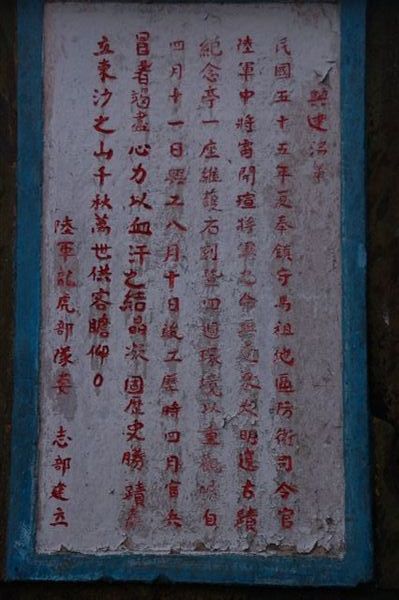 興建沿革
民國五十五年夏奉鎮守馬祖地區防衛司令官
陸軍中將雷開瑄將軍之命興建東犬明邊古蹟
紀念亭一座維護石刻暨四週環境以重觀瞻自
四月十一日興工八月十日竣工歷時四月官兵
冒暑竭盡心力以血汗之結晶凝固歷史勝蹟
立東沙之山千秋萬世供客瞻仰。
陸軍龍虎部隊 志部建立